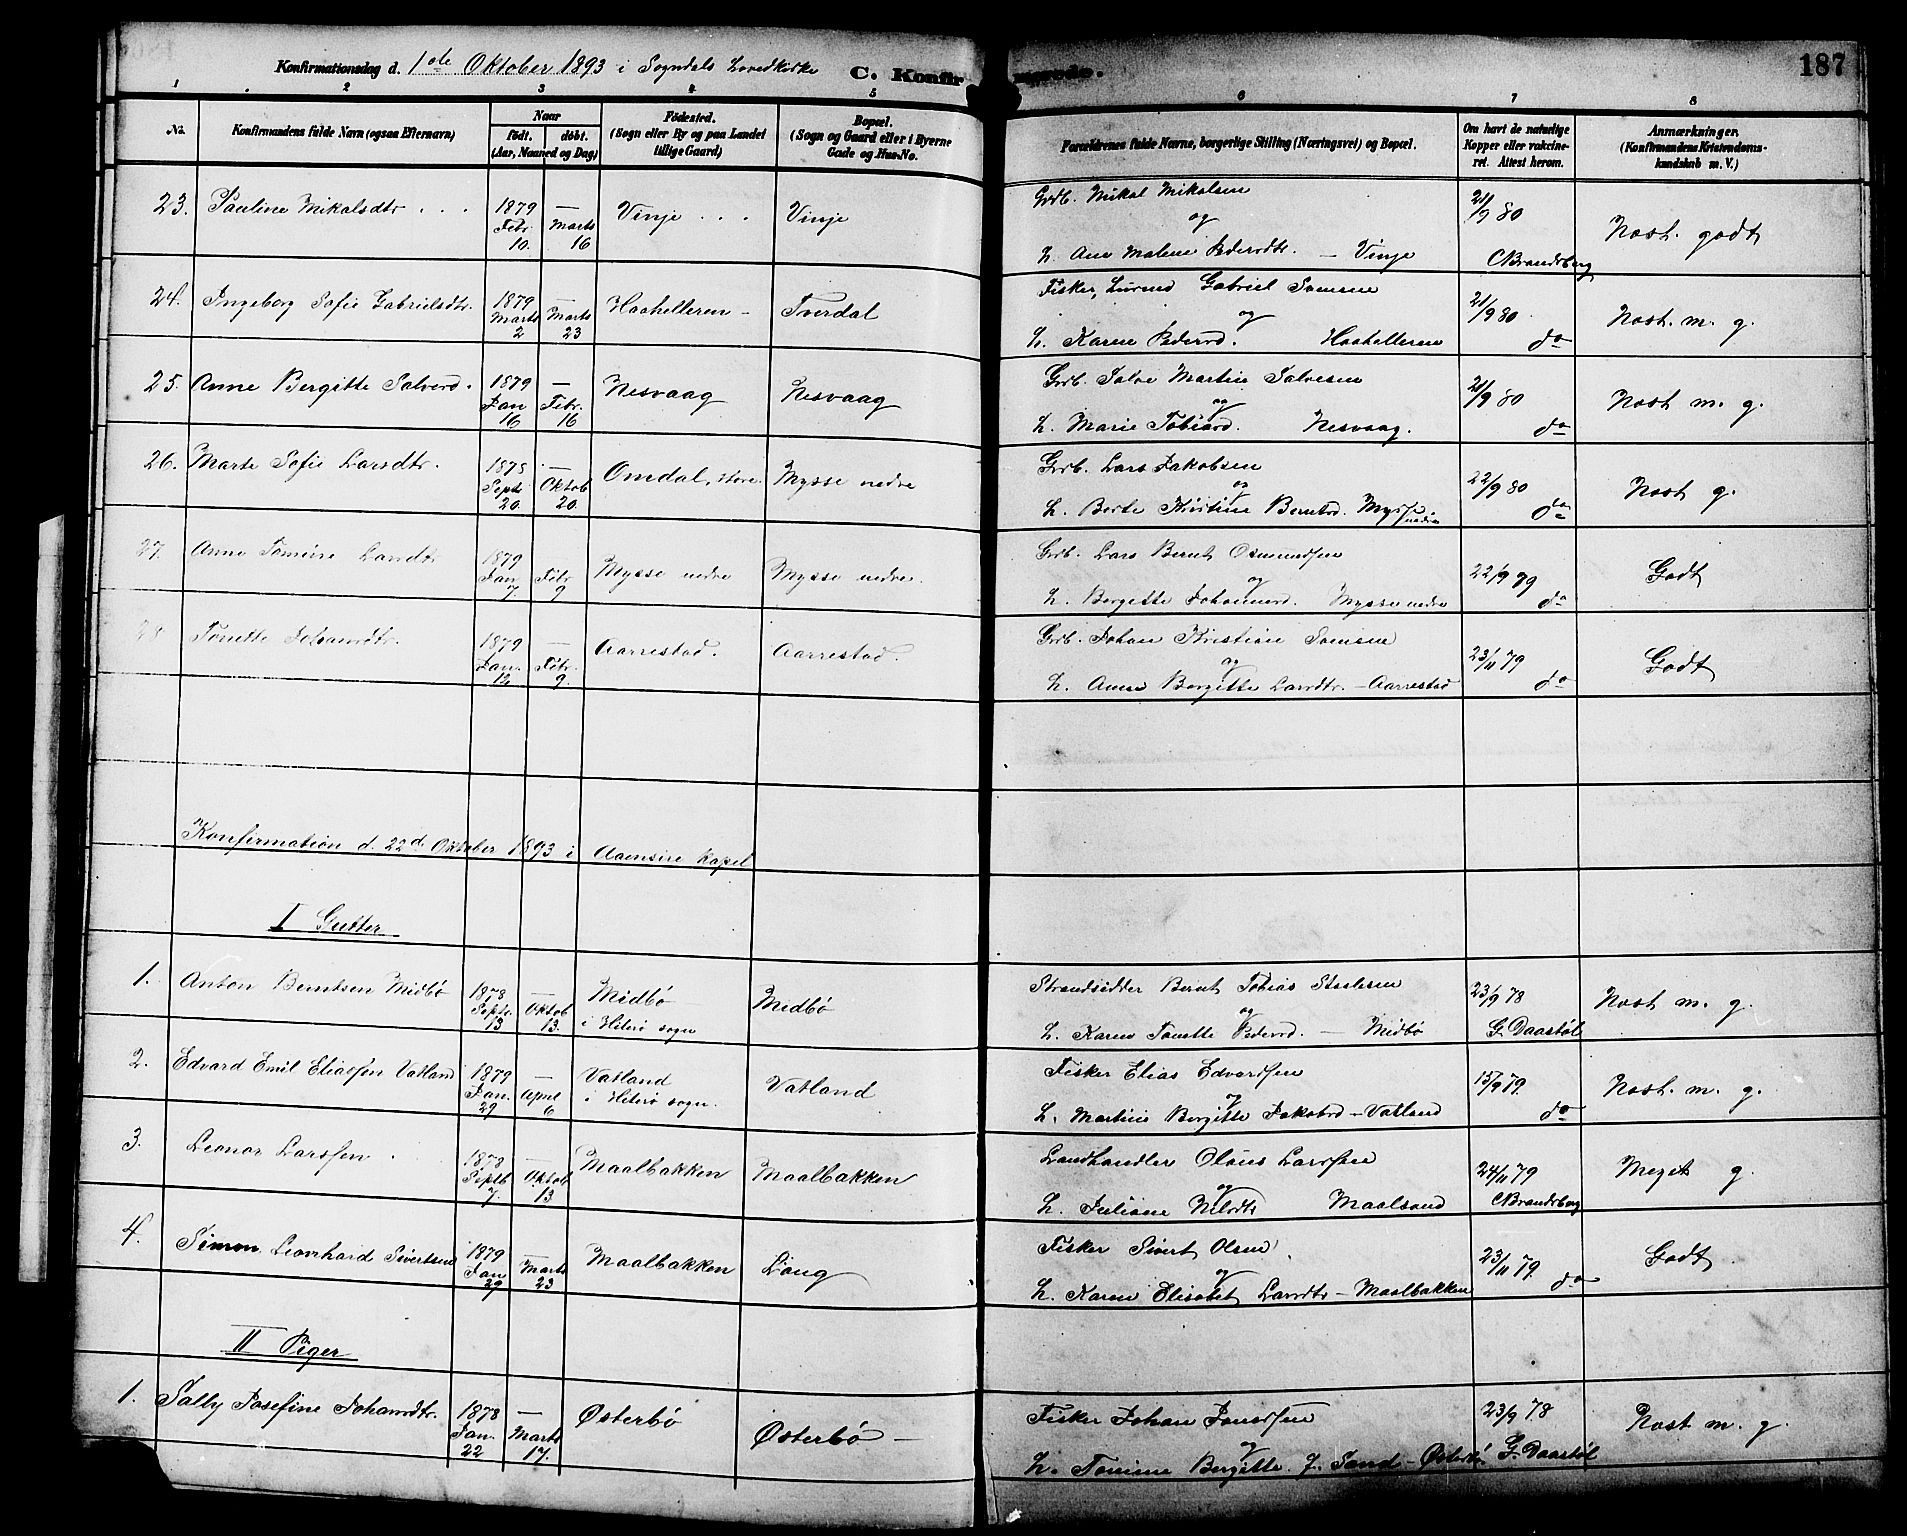 187
Konfirmationsdag d. 1ste Oktober 1893 i Sogndals Hovedkirke C. Konfirmerede.
1 2 3 4 5 6 7 8
No. Konfirmandens fulde Navn (ogsaa Efternavn) Naar født. døbt. (Aar, Maaned og Dag) Fødested. (Sogn eller By og paa Landet tillige Gaard) Bopæl. (Sogn og Gaard eller i Byerne Gade og Hus-No. Forældrenes fulde Navne, borgerlige Stilling (Næringsvei) og Bopæl. Om havt de naturlige Kopper eller vakcineret. Attest herom. Anmærkninger. (Konfirmandens Kristendomskundskab m. V.)
23. Pauline Mikalsdtr. 1879 Febr. 10. — Marts 16 Vinje Vinje Grdb. Mikal Mikalsen og H. Ane Malene Pedersdtr. — Vinje 21/9 80 C Brandsberg Nost. godt
24. Ingeborg Sofie Gabrielsdtr. 1879 Marts 2 — Marts 23 Haahelleren — Tverdal Fisker, Gabriel Samsen og H. Karen Pedersd. Haahelleren 21/9 80 do Nost. m. g.
25. Anne Bergitte Salvesd. 1879 Jan 16 — Febr. 16 Nesvaag Nesvaag Grdb. Salve Martin Salvesen og H. Marie Tobiasd. Nesvaag. 21/9 80 do Nost m. g.
26. Marte Sofie Larsdtr. 1878 Septb 20. — Oktob 20. Omdal, store Mysse nedre Grdb. Lars Jakobsen og H. Berte Kristine Berntsd. Mysse nedre 22/9 80 do Nost g.
27. Anne Tomine Larsdtr 1879 Jan 7. Febr 9 Mysse nedre Mysse nedre. Grdb. Lars Bernt Osmundsen og H. Bergitte Johannesd. Mysse nedre 22/9 79 do Godt
28 Tonette Johansdtr. 1879 Jan. 12. — Febr. 9. Aarrestad. Aarrestad. Grdb. Johan Kristian Samsen og H. Anne Bergitte Larsdtr. — Aarrestad 23/11 79 do Godt
Konfirmation d. 22d Oktober 1893 i Aaensire Kapel
I Gutter
1. Anton Berntsen Midbö 1878 Septr. 13 — Oktob 13. Midbö i Hiterö sogn Midbö Strandsidder Bernt Tobias Staalesen og H. Karen Tonette Pedersd. — Midbö 23/9 78 G. Daastöl Nost m. g.
2. Edvard Emil Eliassen Vatland 1879 Jan. 29 — April 6 Vatland i Hiterö sogn. Vatland Fisker Elias Edvardsen og H. Martine Bergitte Jakobsd — Vatland 15/9 79. do Nost. m. g.
3. Leonar Larssen 1878 Septb 7. — Oktob 13. Maalbakken Maalbakken Landhandler Olaus Larssen og H. Juliane Nilsdtr Maalsand 24/11 79 C Brandsberg Meget g.
4. Simon Leonhard Sivertsen 1879 Jan 29 — Marts 23 Maalbakken Fisker Sivert Olsen og H. Karen Elisabet Larsdtr — Maalbakken 23/11 79. do Godt
II Piger
1. Sally Josefine Johansdtr. 1878 Jan. 22 — Marts 17. Østerbö Østerbö — Fisker Johan Jonassen og H. Tomine Bergitte f. Sand — Østerbö 23/9 78 G. Daastöl Nost m. g.